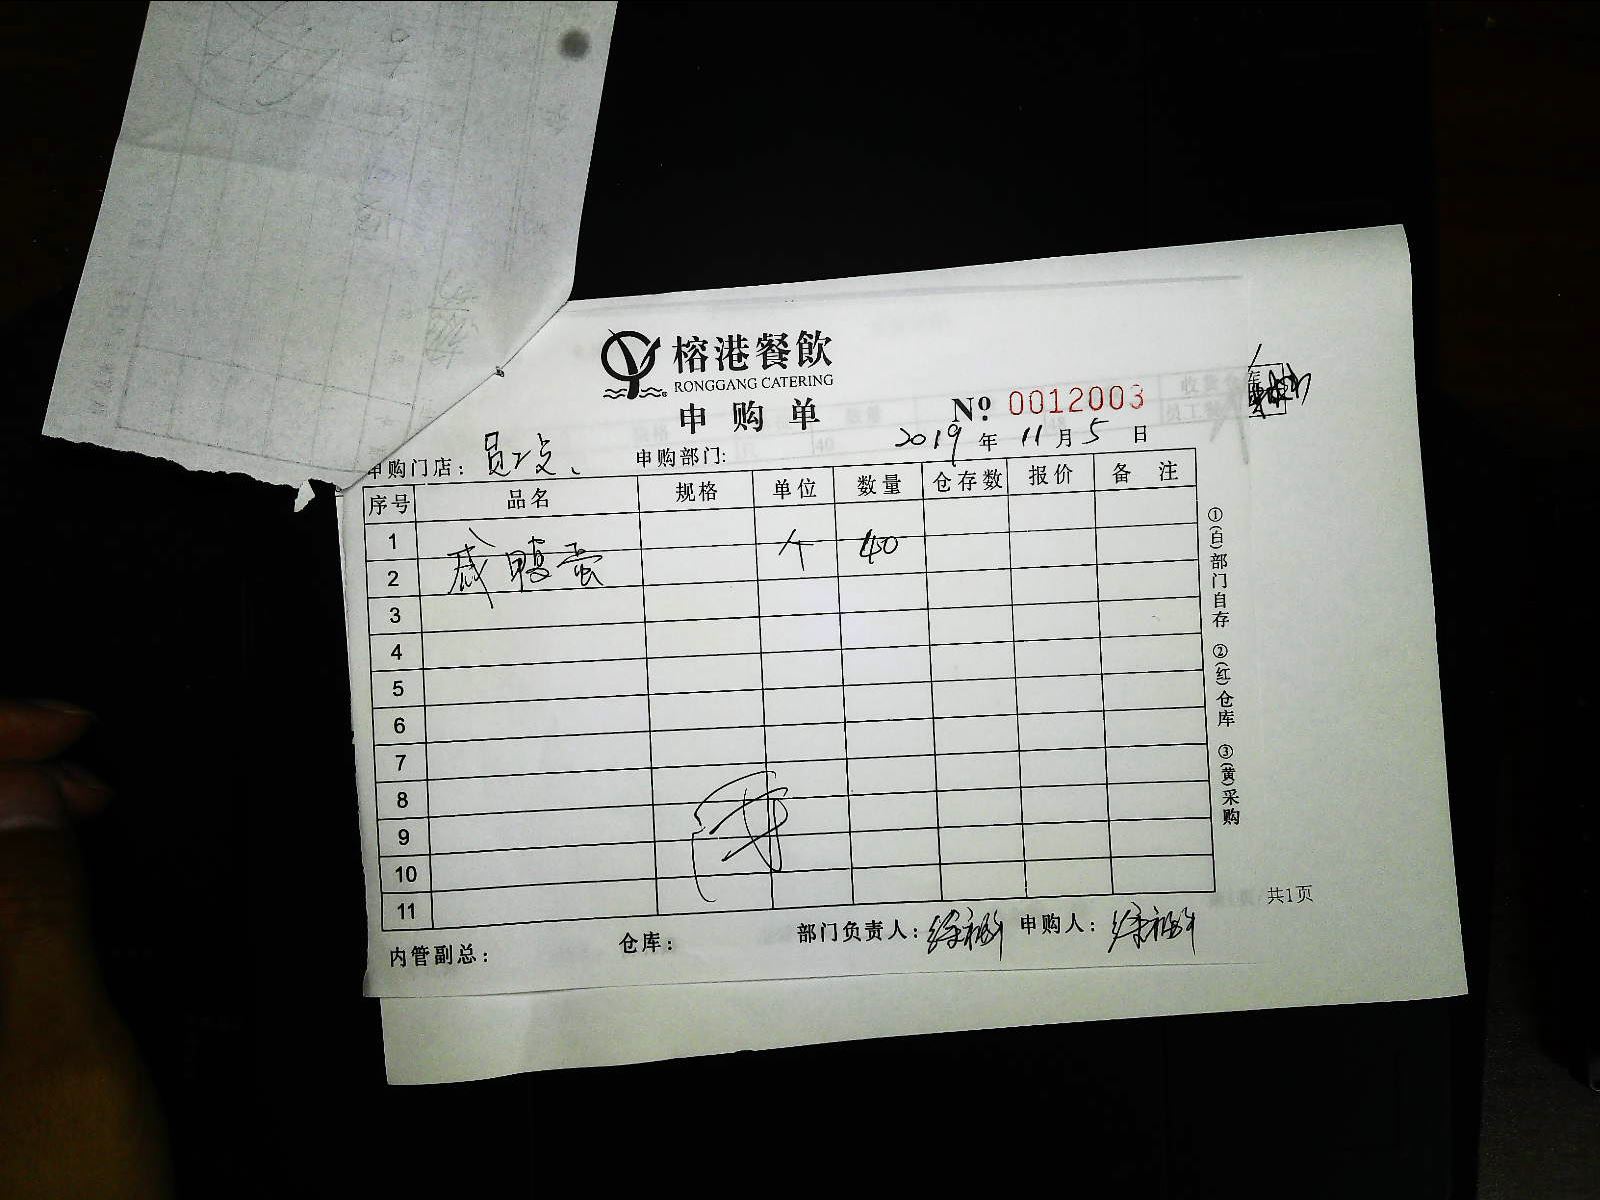 榕港餐飲
RONGGANG CATERING
申购单
Nº 0012003
2019 年 11 月 5 日
申购门店: 申购部门:
序号 品名 规格 单位 数量 仓存数 报价 备 注
1
2 咸鸭蛋 个 40
3
4
5
6
7
8
9
10
11
①(白)部门自存 ②(红)仓库 ③(黄)采购
共1页
内管副总: 仓库: 部门负责人: 申购人: